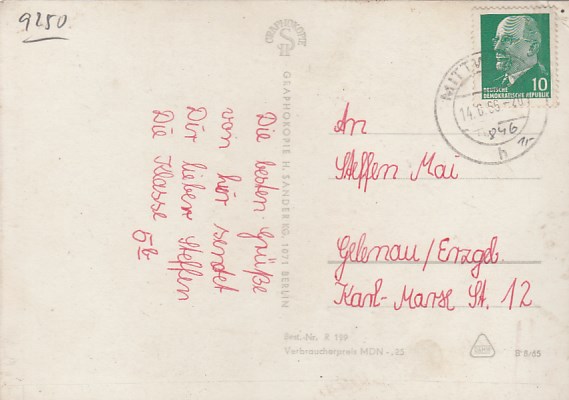 9250
GRAPHOKOPIE
GRAPHOKOPIE H. SANDER KG, 1071 BERLIN
Die besten Grüße
von hir sendet
Dir lieber Steffen
Die Klasse 5b
10
DEUTSCHE
DEMOKRATISCHE REPUBLIK
14.6.66-20
h
846
An
Steffen Mai
Gelenau/Erzgeb.
Karl-Marx St. 12
Best.-Nr. R 199
Verbraucherpreis MDN -,25
B 8/65